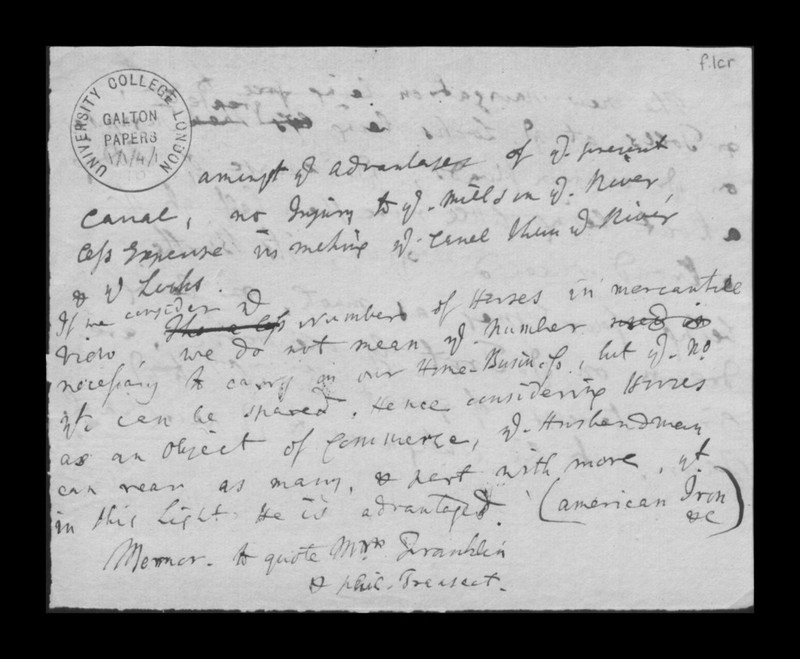 f.1cr
UNIVERSITY COLLEGE LONDON
GALTON
PAPERS
1/1/4/1
amingst yͤ advantages of yͤ present
Canal, no Injury to yͤ mills on yͤ River,
less Expense in making yͤ canal than yͤ River
& yͤ Locks.
If we consider yͤ
The a less Number of Horses in mercantile
view, we do not mean yͤ number used in
necessary to carry on our Home-Business, but yͤ no
yt can be spared. Hence considering Horses
as an Object of Commerce, yͤ Husbandman
can rear as many, & part with more, yt
in this Light He is advantaged. (american Iron
&c)
Memor. to quote Franklin
& phil. Transact.